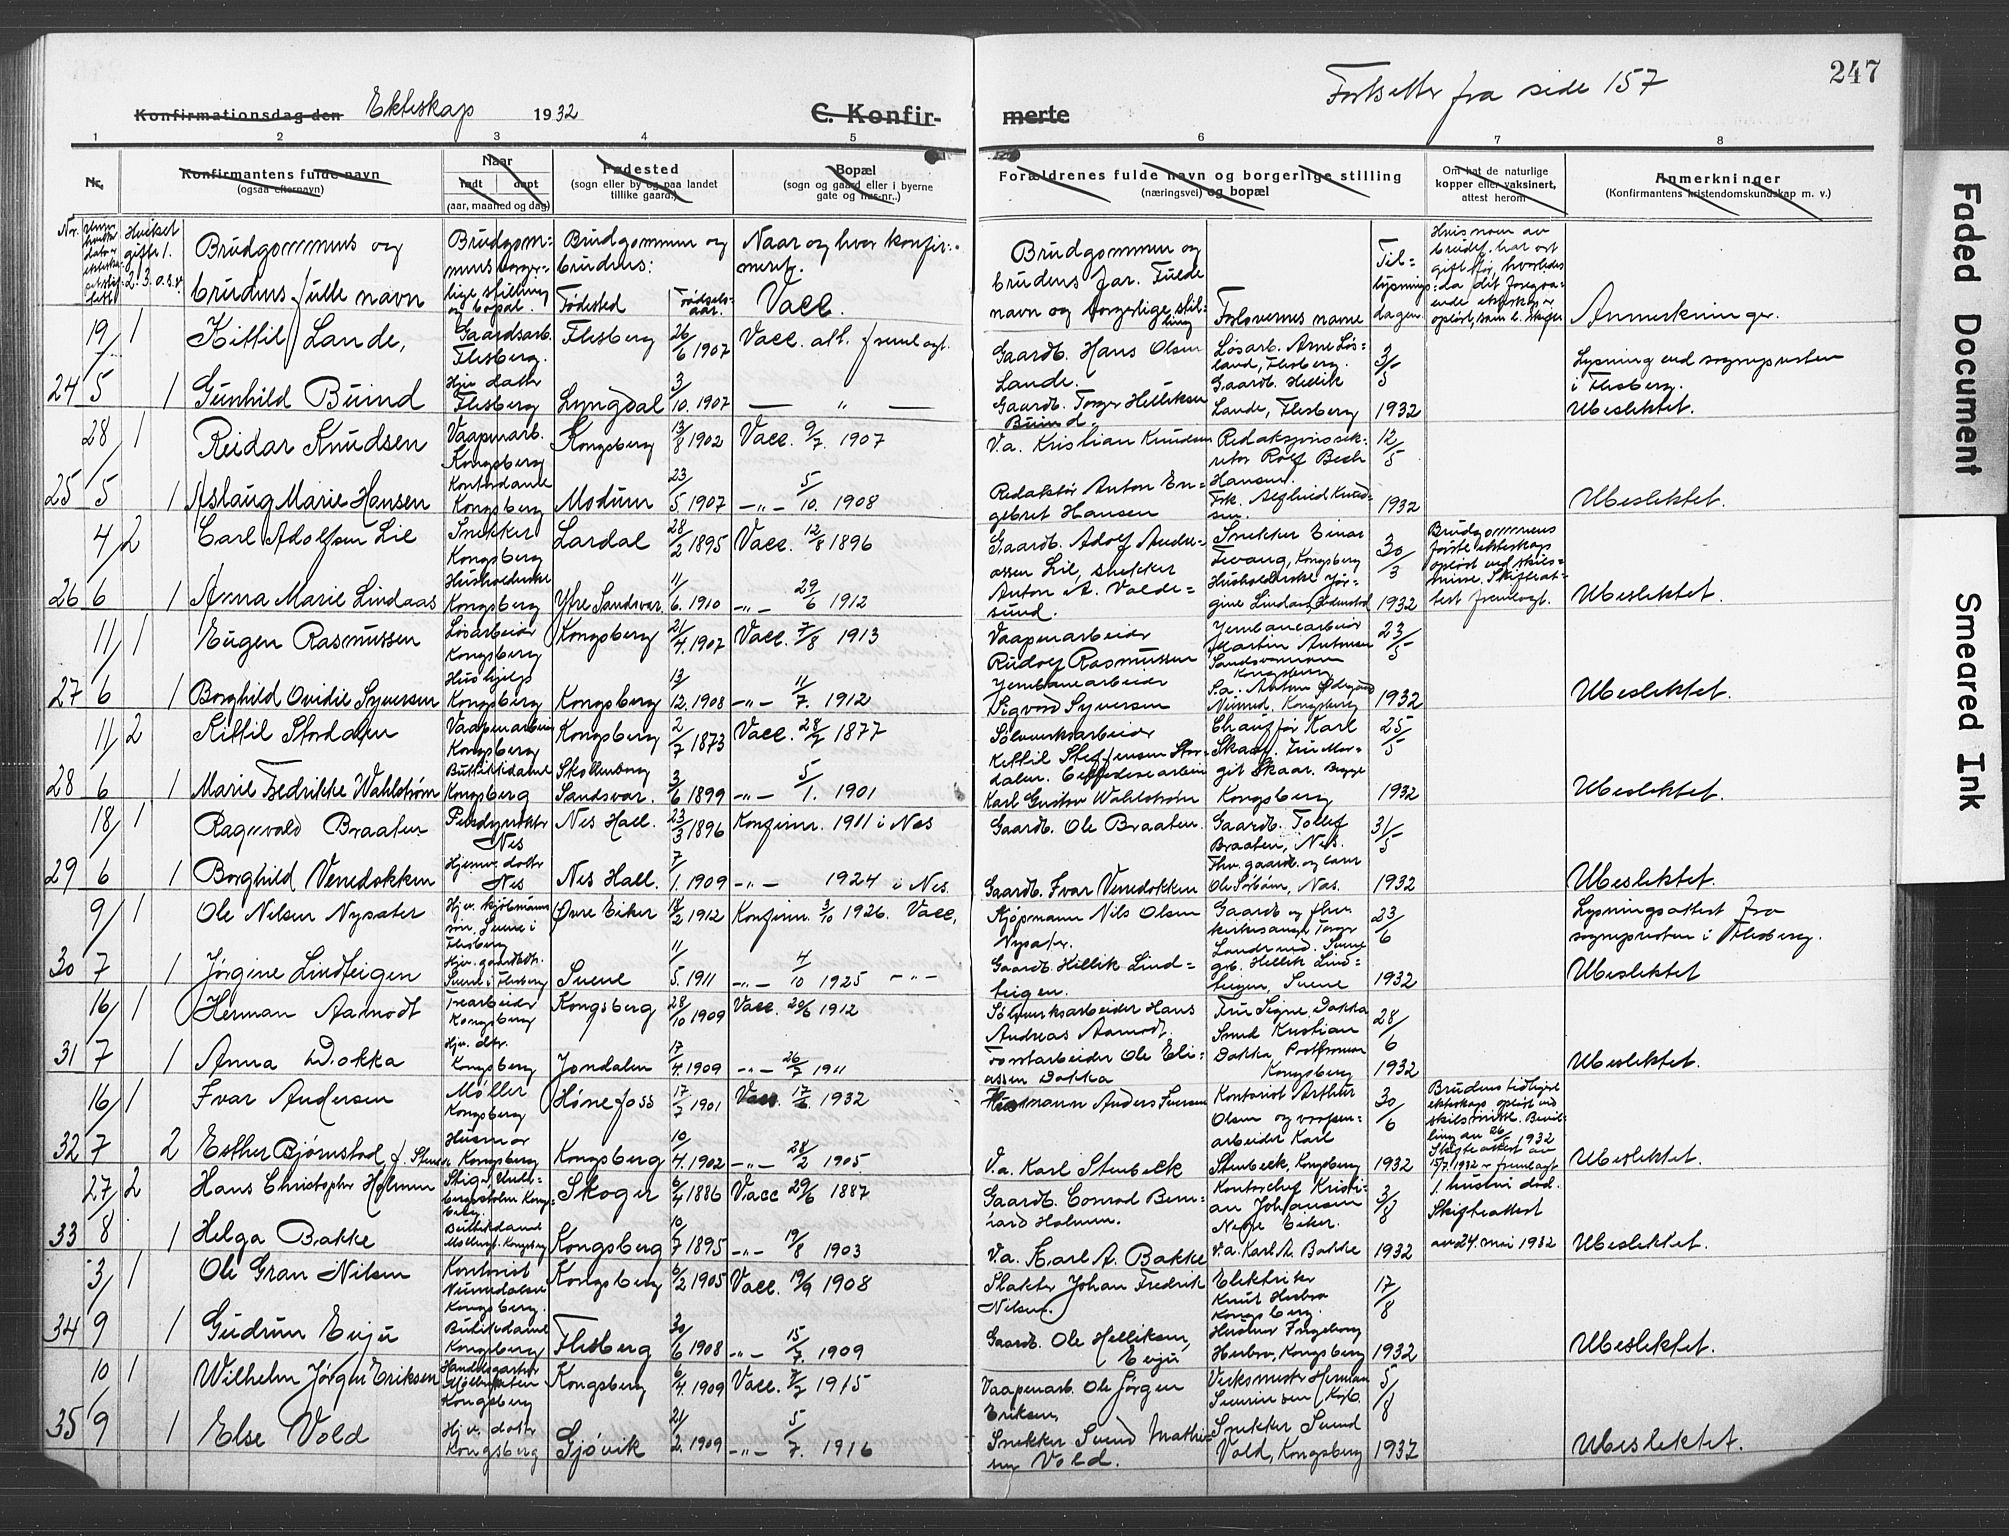 247
Fortsetter fra side 157
Konfirmationsdag den Ekteskap 1932 C. Konfir-
merte
1 2 3 4 5 6 7 8
Nr.
Konfirmantens fulde navn
(ogsaa efternavn)
Naar
født døpt
(aar, maaned og dag)
Fødested
(sogn eller by og paa landet
tillike gaard.)
Bopæl
(sogn og gaard eller i byerne
gate og hus-nr.)
Forældrenes fulde navn og borgerlige stilling
(næringsvei) og bopæl
Om hat de naturlige
kopper eller vaksinert,
attest herom
Anmerkninger
(Konfirmantens kristendomskundskap m. v.)
Nr.
Hvilket
gifte 1.
2. 3. o.s.v.
Brudgommens og
brudens fulle navn
Brudgom-
mens borger-
lige stilling
og bopæl.
Brudgommen og
brudens:
Fødested
Fødsels-
aar.
Naar og hvor konfir-
mert.
Vacc.
Brudgommen og
brudens far. Fulde
navn og borgerlige stil-
ling
Forlovernes navne
Til-
lysnings-
dagen
Hvis noen av
Anmerkninger.
19/ 1 Kittil Lande, Gaardsarb. Flesberg. Flesberg 26/6 1907 Vacc. att. fremlagt.
Gaardb. Hans Olsen Lande. Løsarb. Arne Løs-
land, Flesberg. 3/5
Lysning ved sognepresten
i Flesberg.
24 5 1 Gunhild Buind Hjv. datter Flesberg Lyngdal 3/10. 1907 — " —
Gaardb. Torger Helliksen Buind. Gaardb. Hellik
Lande, Flesberg 1932 Ubeslektet.
28/ 1 Reidar Knudsen Vaapenarb. Kongsberg Kongsberg 13/8 1902 Vacc. 9/7. 1907
V.a. Kristian Knudsen Redaksjonssek-
retær Rolf Bech
Hansen. 12/5
25 5 1 Aslaug Marie Hansen Kontordame Kongsberg Modum 23/5 1907 -"- 5/10. 1908
Redaktør Anton En-
gebret Hansen 1932 Ubeslektet.
4/ 2 Carl Adolfsen Lie Snekker Kongsberg Lardal 28/2 1895 Vacc. 12/8 1896
Gaardb. Adolf Andre-
assen Lie, snekker Snekker Einar
Tevang, Kongsberg 30/3
Brudgommens
første ekteskap
opløst ved skils-
misse. Skifteat-
test fremlagt.
26 6 1 Anna Marie Lindaas Husholderske Kongsberg Ytre Sandsvær 11/6. 1910 -"- 29/6 1912
Anton A. Valde-
sund. Husholderske Jør-
gine Lindaas 1932 Ubeslektet.
11/ 1 Eugen Rasmussen Løsarbeider Kongsberg Kongsberg 21/4 1907 Vacc. 7/8 1913
Vaapenarbeider
Rudolf Rasmussen Jernbanearbeider
Martin Antonsen 23/5
27 6 1 Borghild Ovidie Syversen Hushjelp Kongsberg Kongsberg 13/12. 1908 -"- 11/7. 1912
Jernbanearbeider
Sigvard Syversen S.a. Anton Ødegaard
Kongsberg 1932 Ubeslektet.
11/ 2 Kittil Stordalen Vaapenarbeider Kongsberg Kongsberg 2/7 1873 Vacc. 28/7 1877
Sølvverksarbeider
Kittil Steffensen Stor-
dalen. Chauffør Karl
Skaar. Fru Mar-
git Skaar. Begge
Kongsberg 25/5
28 6 1 Marie Fredrikke Wahlstrøm Butikkdame Kongsberg Skollenborg Sandsvær. 3/6 1899 -"- 5/1. 1901
Karl Gustav Wahlstrøm 1932 Ubeslektet.
18/ 1 Ragnvald Braaten Nes Nes Hall. 23/3 1896 Konfirm. 1911 i Nes
Gaardb. Ole Braaten. Gaardb. Tollef
Braaten, Nes. 31/5
29 6 1 Borghild Venedokken Hjemv. datter Nes Nes Hall. 7/1. 1909 -"- 1924 i Nes.
Gaardb. Ivar Venedokken Fhv. gaardb. og
Ole Sorbøn, Nes. 1932 Ubeslektet.
9/ 1 Ole Nilsen Nysæter Hjv. kjøbmanns
søn. Svene i
Flesberg Øvre Eiker 18/2 1912 Konfirm. 3/10 1926. Vacc.
Kjøpmann Nils Olsen
Nysæter. Gaardb og fhv.
kirkesanger Torger
Lande 23/6
Lysningsattest fra
sognepresten i Flesberg.
30 7 1 Jørgine Lindteigen Hjv. gaardbdtr.
Svene i Flesberg Svene 11/5. 1911 -"- 4/10 1925 -"-
Gaardb. Hellik Lind-
teigen. Hellik Lind-
teigen, Svene 1932 Ubeslektet
16/ 1 Herman Aamodt Trearbeider Kongsberg Kongsberg 28/10 1909 Vacc. 20/6 1912
Sølvverksarbeider Hans
Andreas Aamodt. Fru Signe Dokka
Smed Kristian
Dokka
Kongsberg 28/6
31 7 1 Anna Dokka Hjv. dtr. Kongsberg Jondalen 17/4. 1909 -"- 26/7 1911
Forstarbeider Ole Eli-
assen Dokka 1932 Ubeslektet.
16/ 1 Ivar Andersen Møller Kongsberg Hønefoss 17/7 1901 Vacc. 17/6 1932
Anders Iversen Kontorist Arthur
Olsen og vaapen-
arbeider Karl
Stenbeck, Kongsberg 30/6
Brudens tidligere
ekteskap opløst ved
skilsmisse. Bevil-
ling av 26/ 1932
Skifteattest av
15/7. 1932 fremlagt
32 7 2 Esther Bjørnstad f. Stenbeck Husmor Kongsberg Kongsberg 10/4. 1902 -"- 28/2 1905
V.a. Karl Stenbeck 1932 Ubeslektet.
27/ 2 Hans Christopher Holmen Skoger 6/4 1886 Vacc 29/6 1887
Gaardb. Conrad Bern-
hard Holmen. Kontorchef Kristi-
an Johansen
Nedre Eiker. 3/8
1. hustru død.
Skifteattest
av 24. mai 1932
33 8 1 Helga Bakke Butikkdame Kongsberg Kongsberg 10/7 1895 -"- 19/8 1903
V.a. Karl A. Bakke V.a. Karl A. Bakke 1932 Ubeslektet.
3/ 1 Ole Gran Nilsen Kontorist
Numedalsv.
Kongsberg. Kongsberg 6/2 1905 Vacc. 19/9 1908
Slakter Johan Fredrik
Nilsen. Elektriker
Knut Herbro
Kongsberg. 17/8
34 9 1 Gudrun Evju Butikkdame Kongsberg Flesberg 30/6 1908 -"- 15/7. 1909
Gaardb. Ole Helliksen
Evju Husmor Ingeborg
Herbro, Kongsberg 1932 Ubeslektet.
10 1 Wilhelm Jørgen Eriksen Handelsgartner
Kongsberg Kongsberg 6/4 1909 Vacc. 7/7 1915
Vaapenarb. Ole Jørgen
Eriksen, Verksmester Herman
Severinsen Kbg. 5/8
35 9 1 Else Vold Hjv. datter Kongsberg Gjøvik 21/2. 1909 -"- 5/7. 1916
Snekker Svend Mathie-
sen Vold. Snekker Svend
Vold, Kongsberg 1932 Ubeslektet.
Faded Document
Smeared Ink